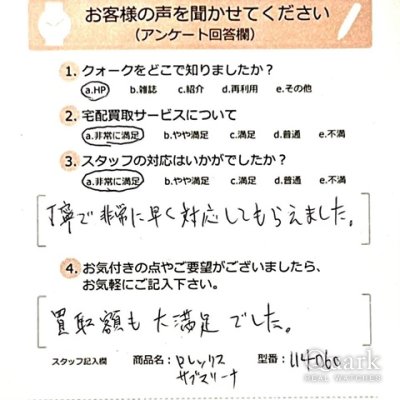 お客様の声を聞かせてください
(アンケート回答欄)
1. クォークをどこで知りましたか?
a.HP b.雑誌 c.紹介 d.再利用 e.その他
2. 宅配買取サービスについて
a.非常に満足 b.やや満足 c.満足 d.普通 e.不満
3. スタッフの対応はいかがでしたか?
a.非常に満足 b.やや満足 c.満足 d.普通 e.不満
丁寧で非常に早く対応してもらえました。
4. お気付きの点やご要望がございましたら、
お気軽にご記入下さい。
買取額も大満足でした。
スタッフ記入欄 商品名: ロレックス 型番: 114060
サブマリーナ
Quark
REAL WATCHES